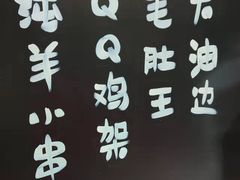 油边
毛肚王
QQ鸡架
羊小串